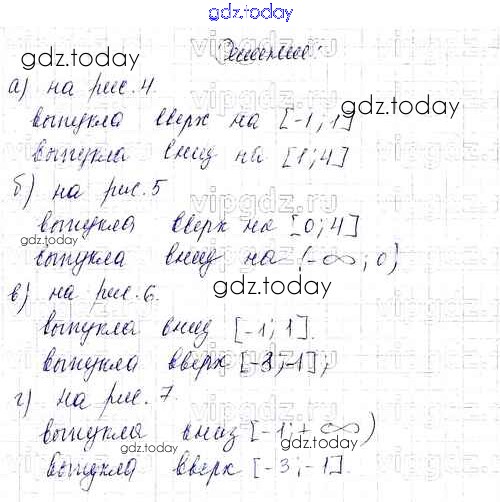 gdz.today
Решение:
gdz.today
а) на рис. 4.
gdz.today
выпукла вверх на [-1; 1]
выпукла вниз на [1; 4]
б) на рис. 5
выпукла вверх на [0; 4]
gdz.today
выпукла вниз на (-∞; 0)
в) на рис. 6.
gdz.today
выпукла вниз [-1; 1].
выпукла вверх [-3; -1];
gdz.today
г) на рис. 7.
выпукла вниз [-1; +∞)
gdz.today
выпукла вверх [-3; -1].